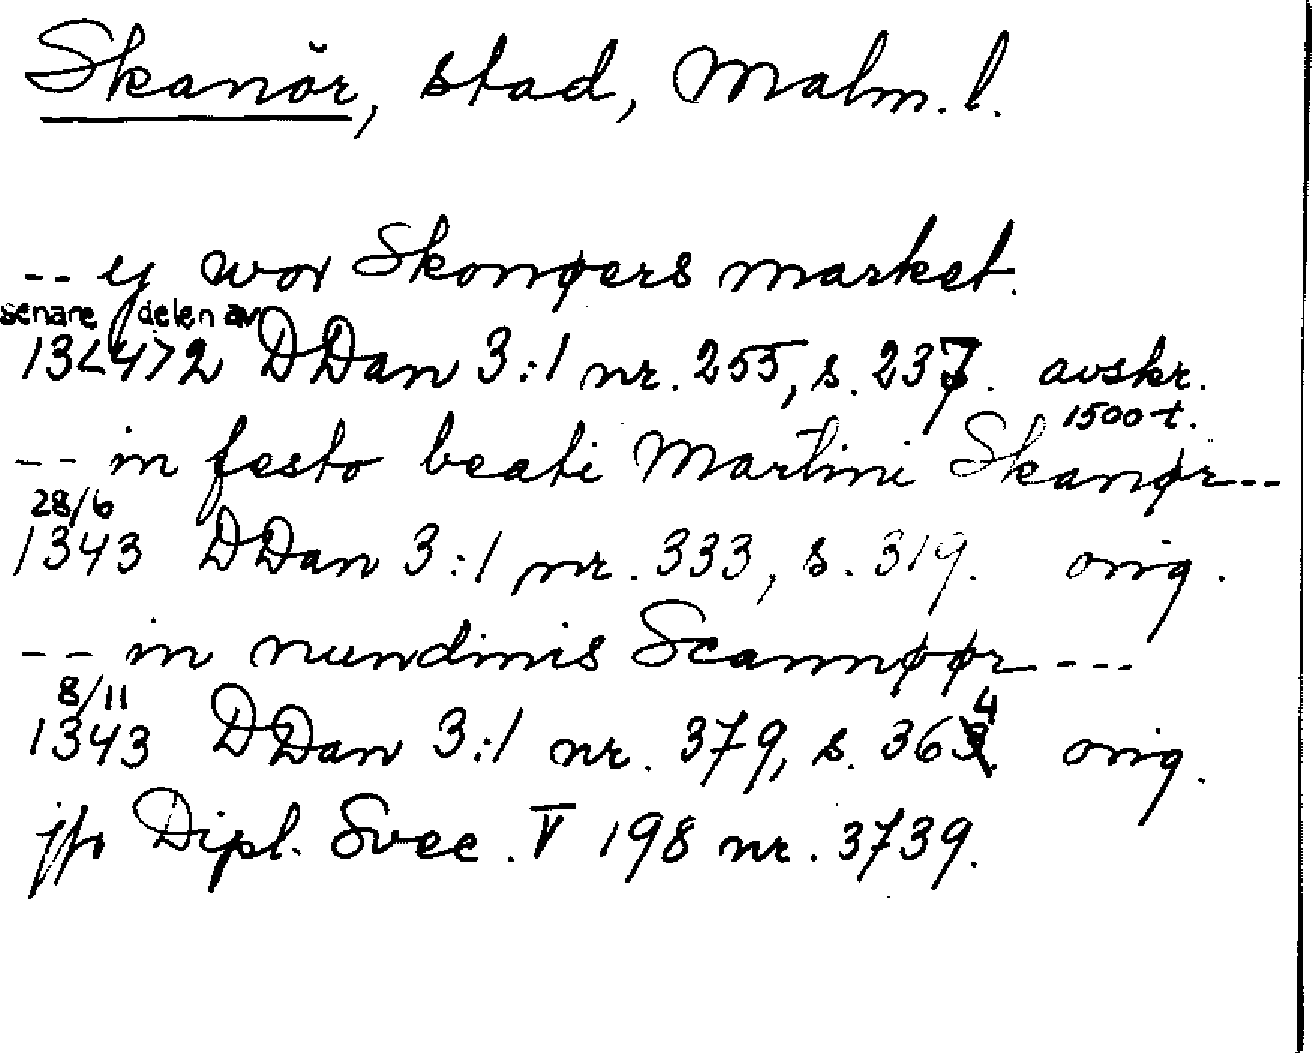 Skanör, stad, Malm. l.
-- ij wor Skonøers market.
senare delen av
13<4>2 DDan 3:1 nr. 255, s. 237. avskr.
1500-t.
-- in festo beati Martini Skanør---
28/6
1343 DDan 3:1 nr. 333, s. 319. orig.
-- in nundinis Scannøør---
8/11
1343 DDan 3:1 nr. 379, s. 364 orig.
jfr Dipl. Svec. V 198 nr. 3739.